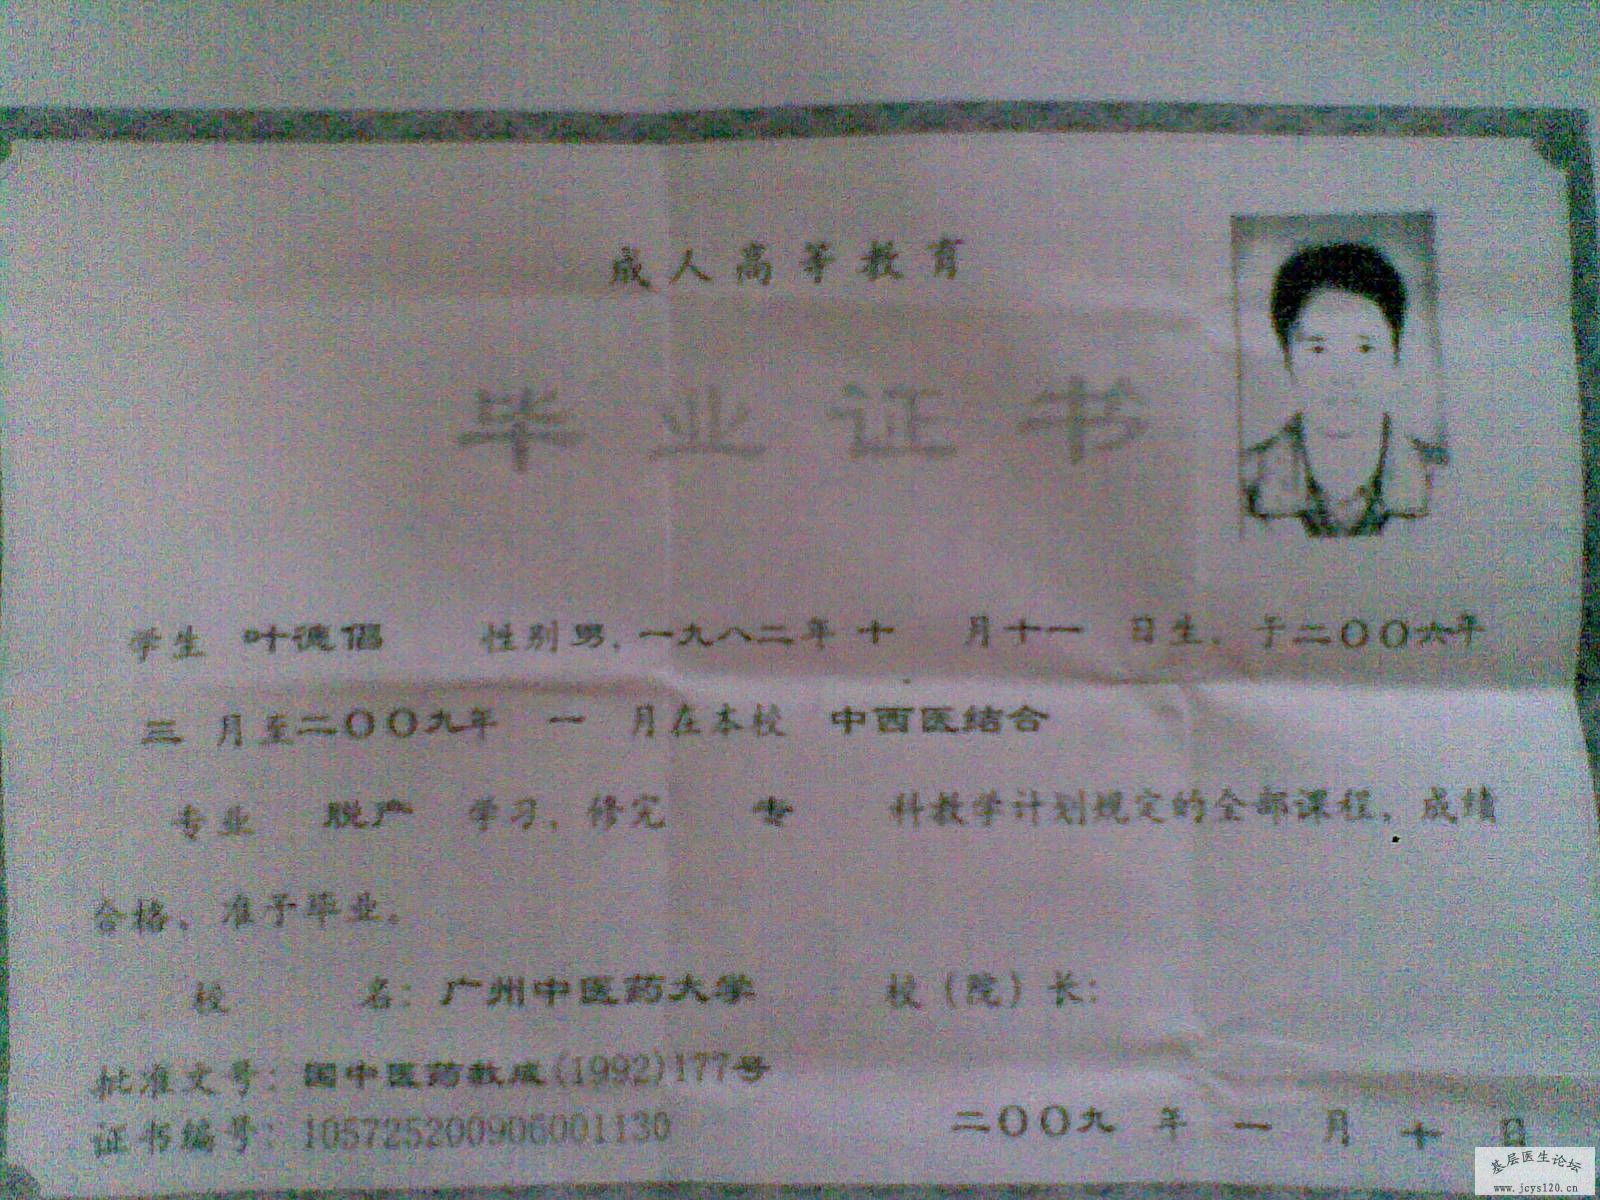 成人高等教育
毕业证书
学生 叶德倡 性别男，一九八二年 十 月十一 日生，于二〇〇六年
三 月至二〇〇九年 一 月在本校 中西医结合
专业 脱产 学习，修完 专 科教学计划规定的全部课程，成绩
合格，准予毕业。
校 名：广州中医药大学 校（院）长：
批准文号：国中医药教成(1992)177号
证书编号：105725200906001130
二〇〇九 年 一 月 十 日
基层医生论坛
www.jcys120.cn